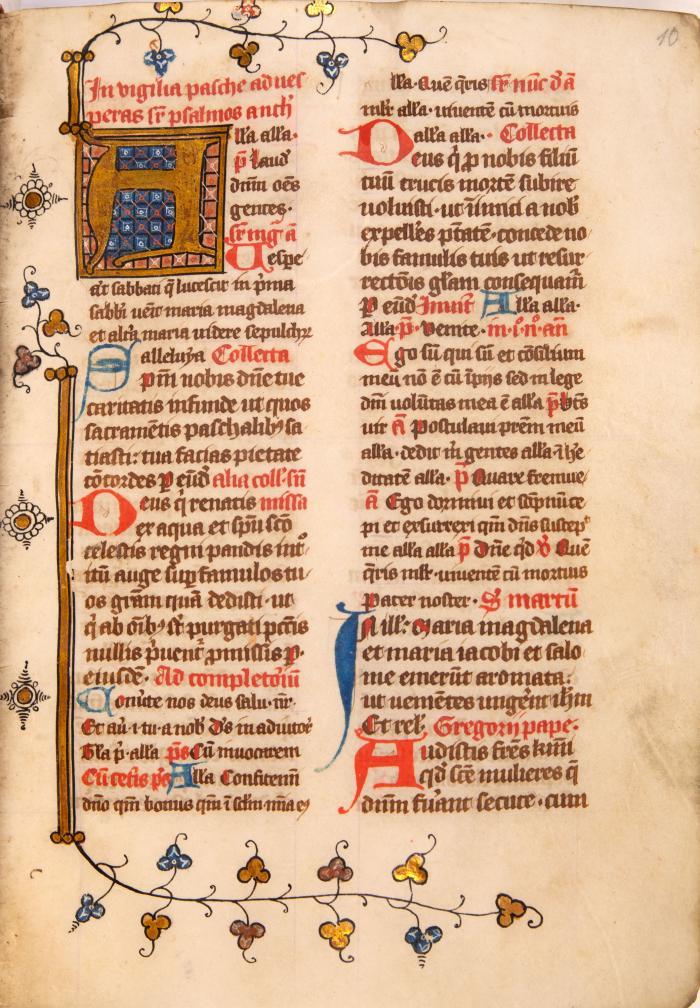 10
In vigilia pasche ad ues
peras sr psalmos anth
Alla alla·
p Laud
dnm oes
gentes·
sr mg a
Uespe
re sabbati q lucescit in pma
sabbi uenit maria magdalena
et altera maria uidere sepulchr
alleluya Collecta
Spm nobis dne tue
caritatis infunde ut quos
sacrametis paschalibus sa
tiasti: tua facias pietate
cocordes P eund alia coll sn
Deus q renatis missa
ex aqua et spu sco
celestis regni pandis int
itu auge sup famulos tu
os gram qua dedisti· ut
q ab oib sr purgati pctis
nullis puent pmissis P·
eiusde· Ad completoriu
Conute nos deus salu· nr·
Et au· i tu a nob Ds in adiutor
Gla p· alla ps Cu inuocarem
Cu cetis ps Alla Confitemi
dno qm bonus qm i sclm mia e
lla· Que qris sr nuc d a
mlr alla· uiuente cu mortuis
alla alla·· Collecta
Deus q p nobis filiu
tuu crucis morte subire
uoluisti· ut inimici a nob
expelles ptate· concede no
bis famulis tuis ut resur
rectois gram consequam
P eund Inuit Alla alla·
Alla p· Venite· in· i· n· an
Ego su qui su et cosilium
meu no e cu ipijs sed in lege
dni volutas mea e alla p Bts
uir a Postulaui prem meu
alla· dedit m gentes alla i he
ditate alla· p Quare fremue
a Ego dormiui et sopnu ce
pi et exsurrexi qm dns suscep
me alla alla p Dne qd v Que
qris mlr· uiuente cu mortuis
Pater noster· S martu
In ill· Maria magdalena
et maria iacobi et salo
me emerut aromata:
ut uenietes ungent ihm
Et rel· Gregorij pape·
Audistis fres kmi
qd sce mulieres q
dnm fuant secute· cum